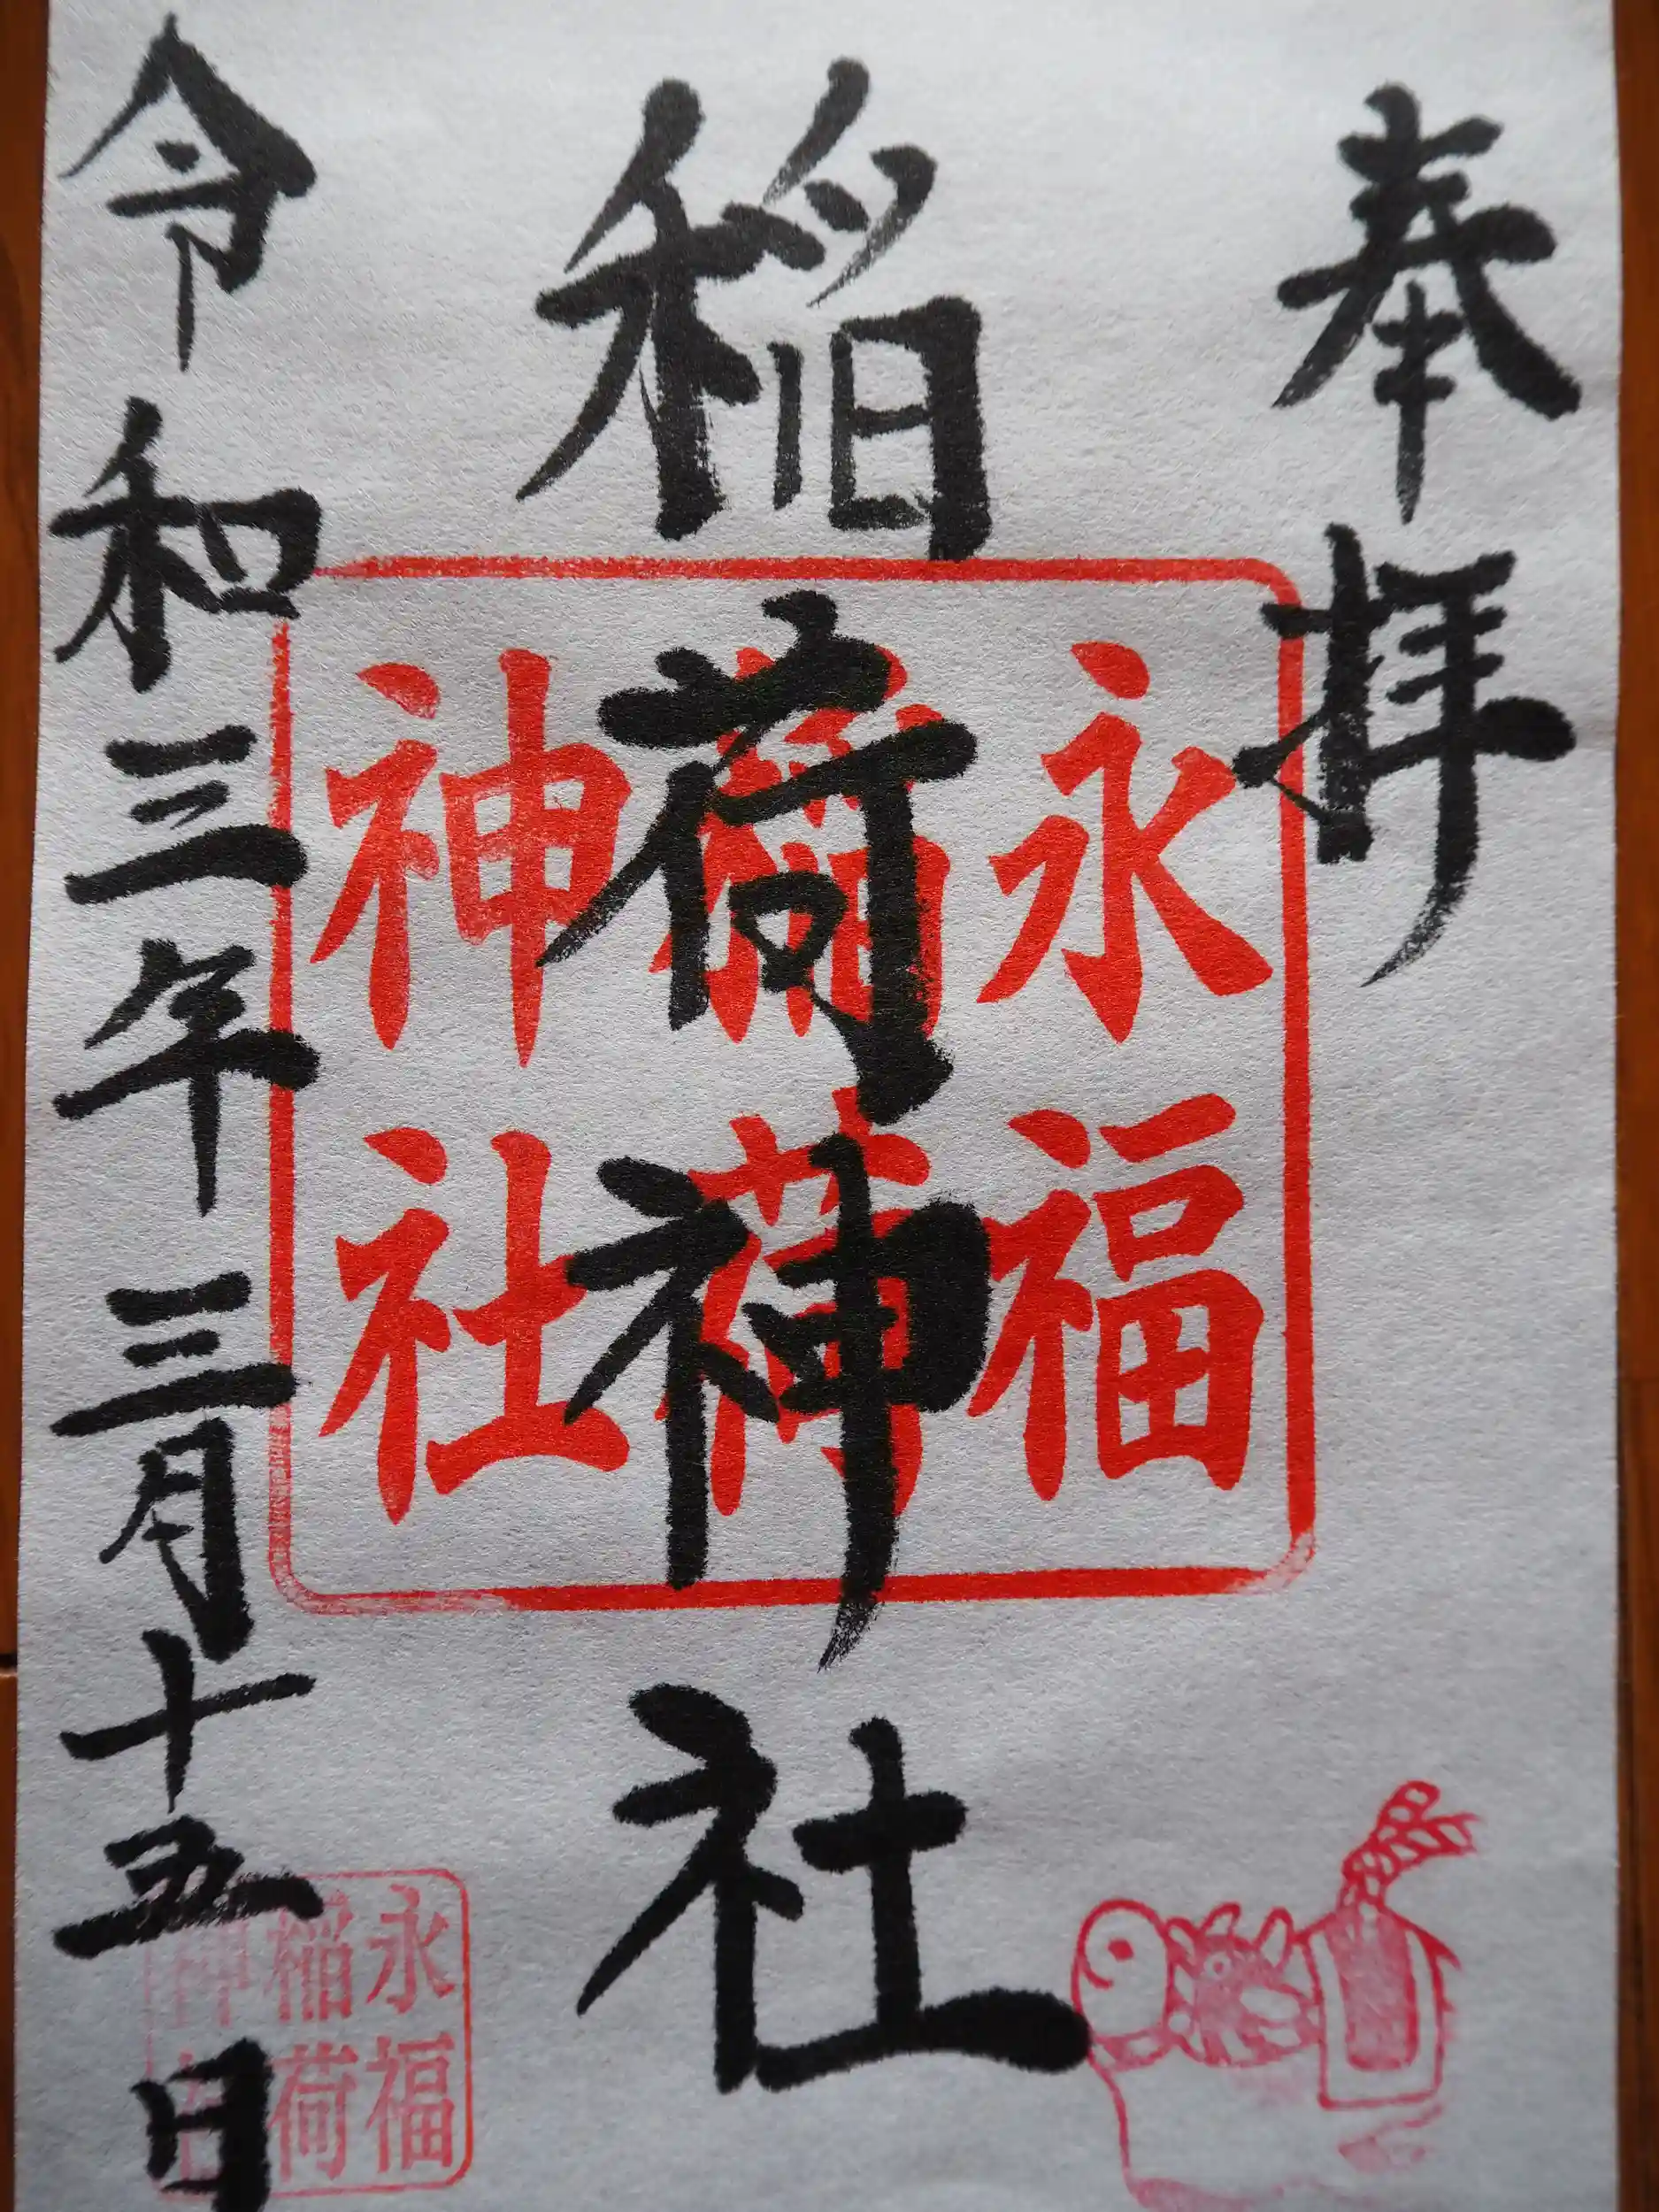 奉拝
稲荷神社
令和三年三月十五日
永福
稲荷
神社
永福
稲荷
神